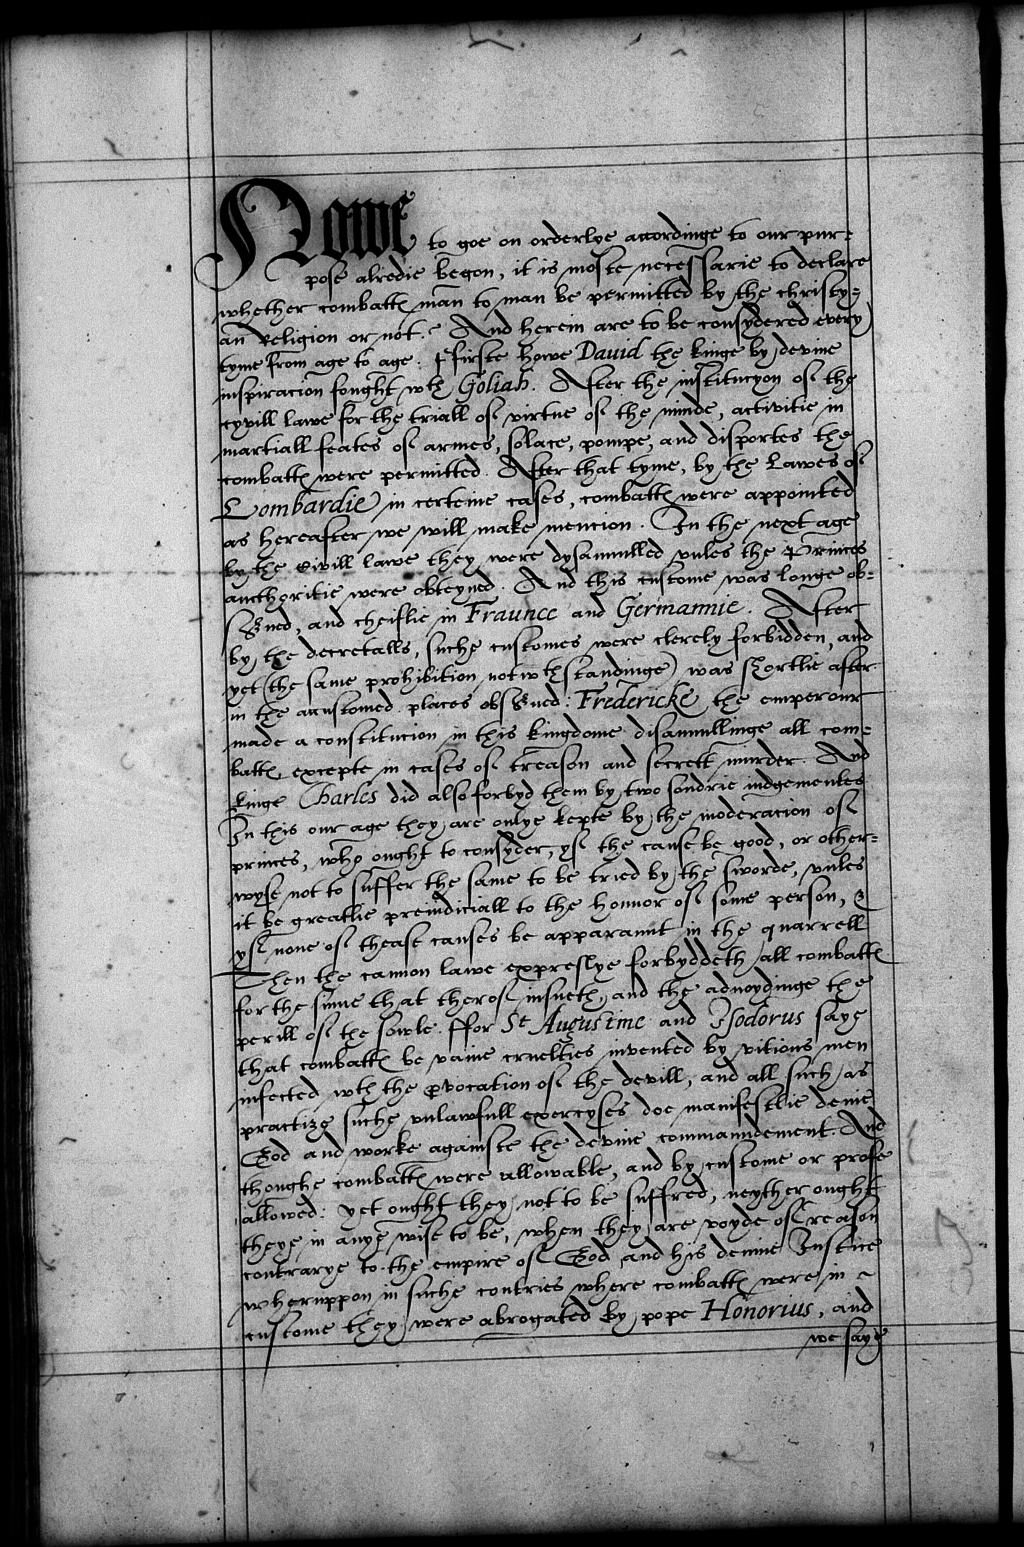 Nowe to goe on orderlye accordinge to our pur=
pose alredie begon, it is moste necessarie to declare
whether combatt℮ man to man be permitted by the christy=
an religion or not.? And herein are to be consydered every
tyme from age to age. ffirste howe Dauid the kinge by devine
inspiracion fought wth Goliah. After the institucyon of the
cyvill lawe for the triall of virtue of the minde, activitie in
martiall feates of armes, solace, pompe, and disportes the
combatt℮ were permitted. After that tyme, by the Lawes of
Lombardie in certeine cases, combatt℮ were appointed
as hereafter we will make mencion. In the next age
by the civill lawe they were dysanulled vnles the Princes
aucthoritie were obteyned. And this custome was longe ob=
s̃ved, and cheiflie in Fraunce and Germannie. After
by the decretalls, suche customes were clerely forbidden, and
yet (the same prohibition notwthstandinge) was shortlie after
in the accustomed places obs̃ved: Fredericke the emperour
made a constitucion in this kingdome disanullinge all com=
batt℮ excepte in cases of treason and secrett murder. And
kinge Charles did also forbyd them by two sondrie iudgementes
In this our age they are onlye kepte by the moderacion of
princes, who ought to consyder, yf the cause be good, or other=
wyse not to suffer the same to be tried by the sworde, vnles
it be greatlie preiudiciall to the honnor of some person, &
yf none of thease causes be apparannt in the quarrell
Then the cannon lawe expreslye forbyddeth all combatt℮
for the sinne that therof insueth, and the advoydinge the
perill of the sowle. ffor St Augustine and Isodorus saye
that combatt℮ be vaine cruelties invented by vitious men
infected wth the ꝓvocation of the devill, and all such as
practize suche vnlawfull exercyses doe manifestlie denie
God and worke againste the devine commaundement. And
thoughe combatt℮ were allowable, and by custome or profe
allowed: yet ought they not to be suffred, neyther ought
theye in anye wise to be, when they are voyde of reason
contrarye to the empire of God and his devine Justice
wheruppon in suche contries where combatt℮ were in ~
custome they were abrogated by pope Honorius, and
we saye